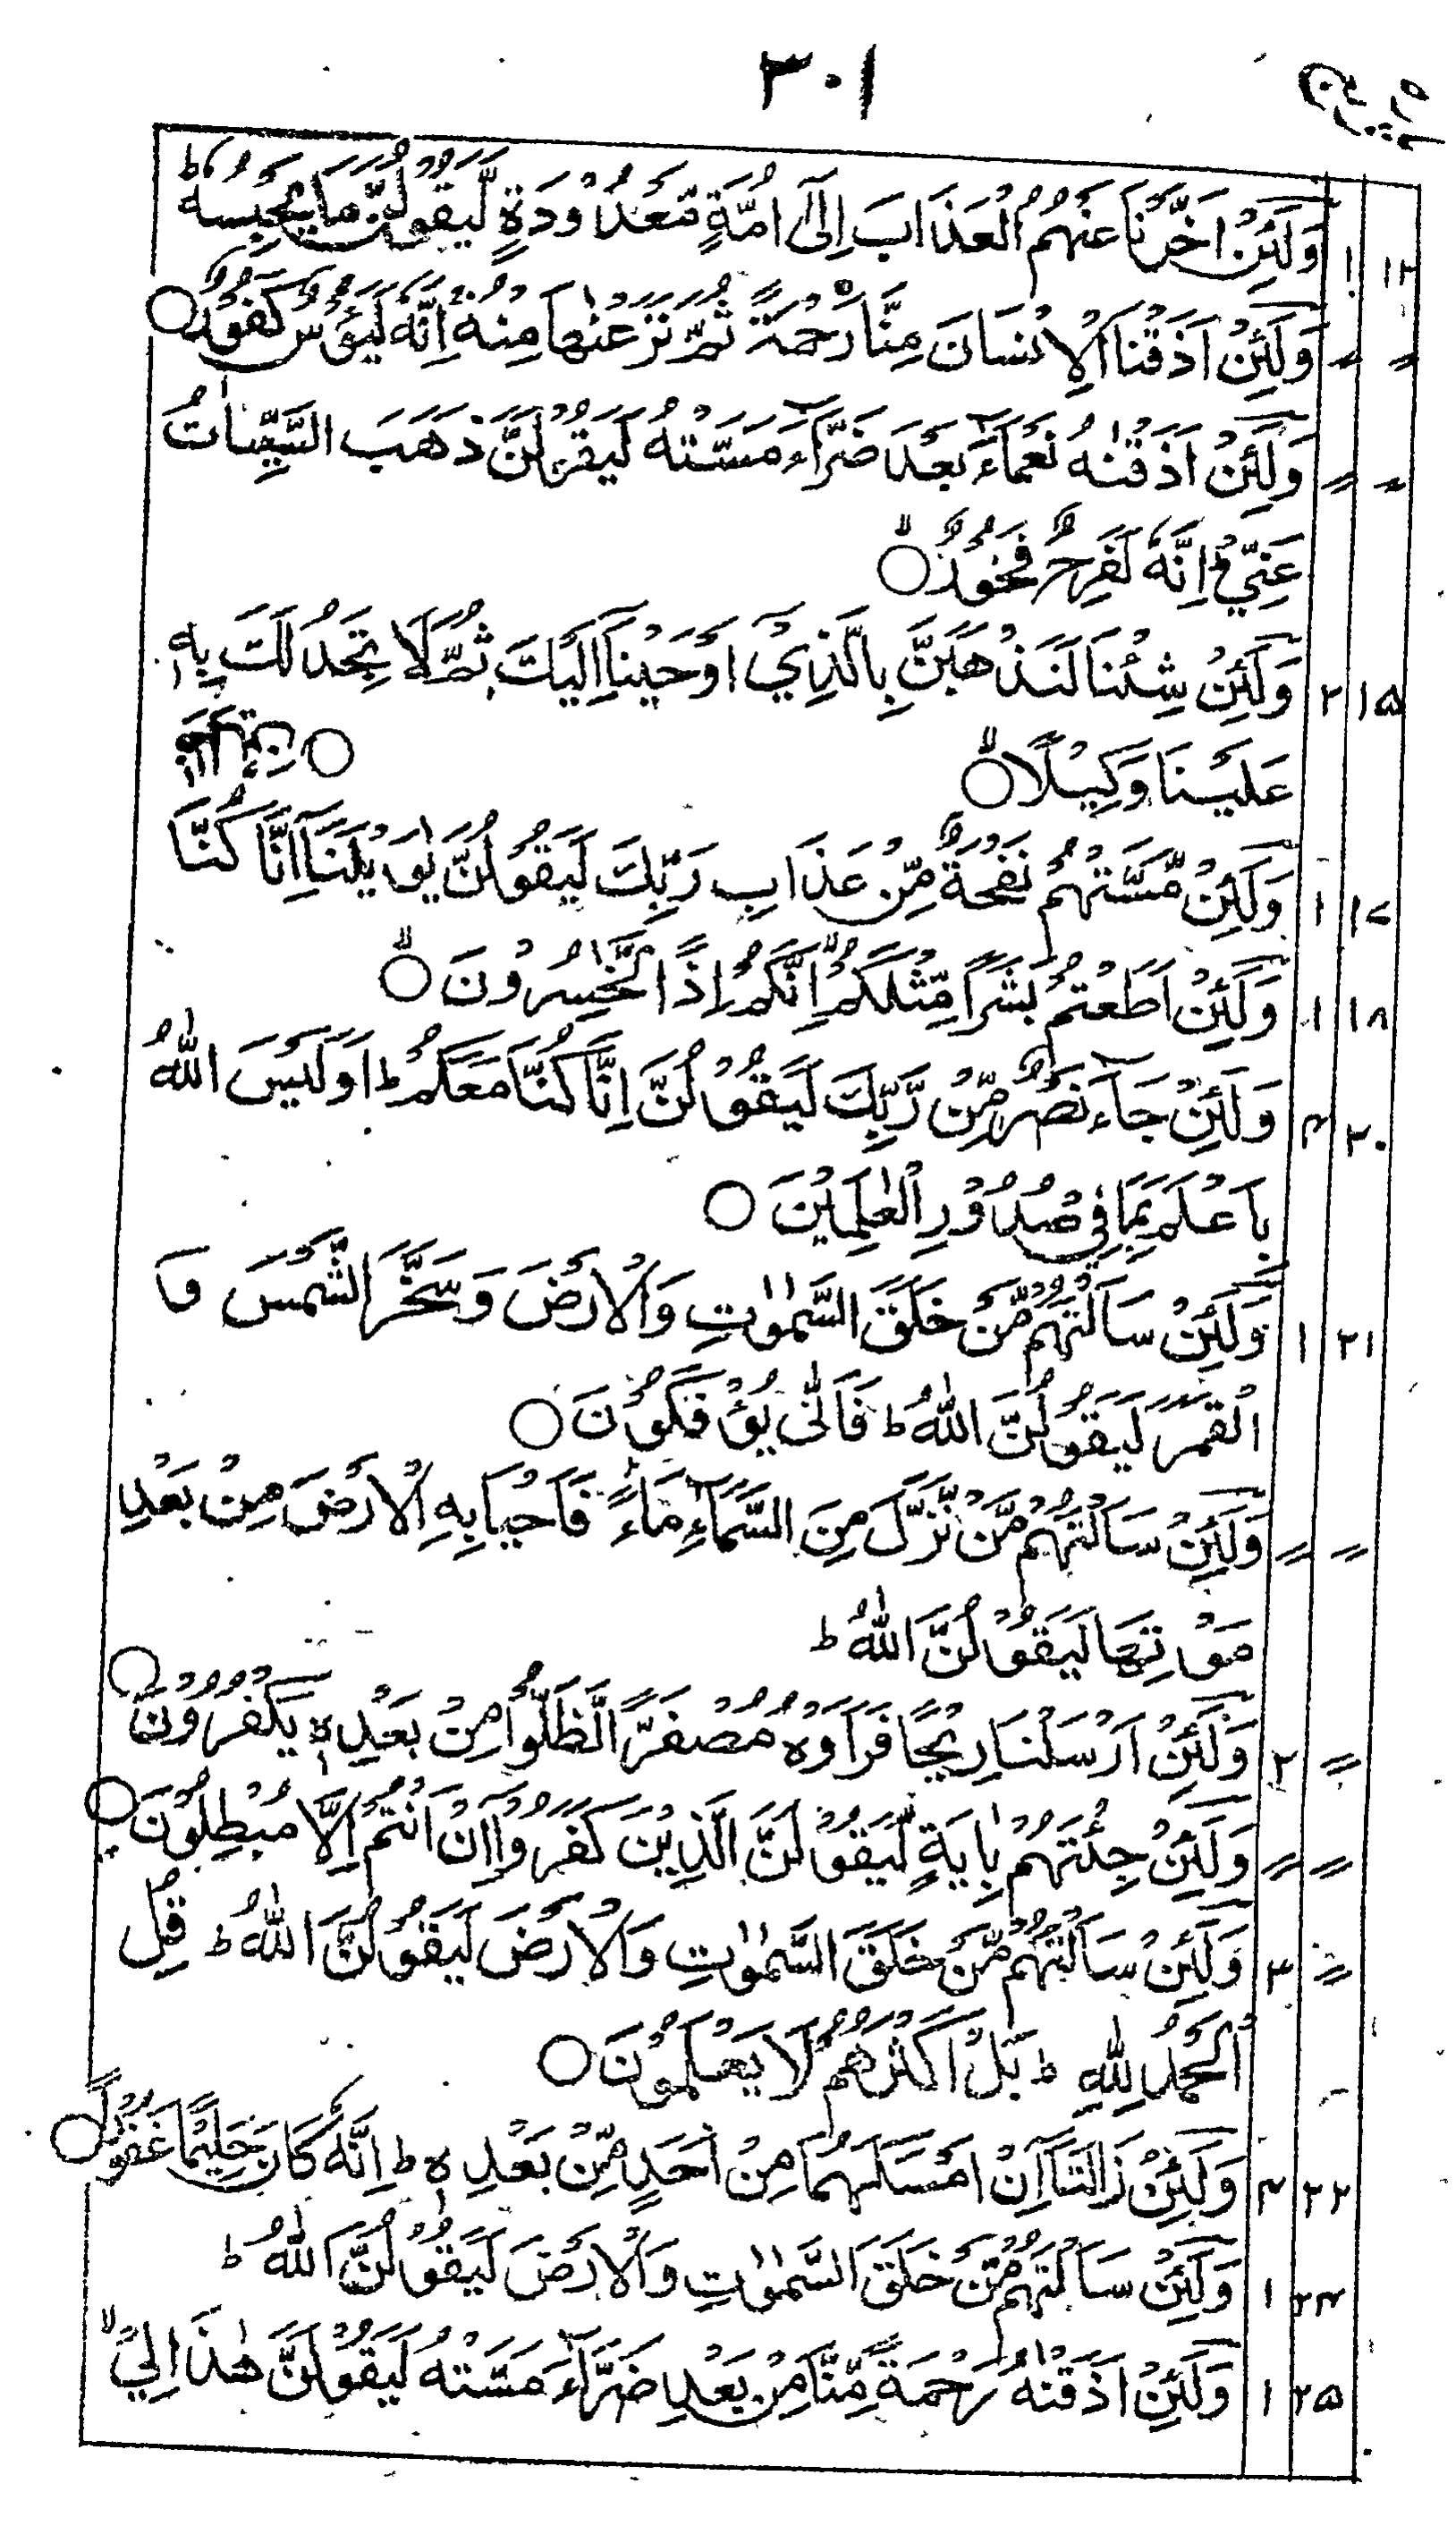 ٣٠١
وَلَئِنْ اَخَّرْنَا عَنْهُمُ الْعَذَابَ اِلٰٓى اُمَّةٍ مَّعْدُوْدَةٍ لَّيَقُوْلُنَّ مَا يَحْبِسُهٗ ؕ ١ ١٢
وَلَئِنْ اَذَقْنَا الْاِنْسَانَ مِنَّا رَحْمَةً ثُمَّ نَزَعْنٰهَا مِنْهُ اِنَّهٗ لَيَـُٔوْسٌ كَفُوْرٌ ○ 〃 〃
وَلَئِنْ اَذَقْنٰهُ نَعْمَآءَ بَعْدَ ضَرَّآءَ مَسَّتْهُ لَيَقُوْلَنَّ ذَهَبَ السَّيِّاٰتُ 〃 〃
عَنِّيْ ؕ اِنَّهٗ لَفَرِحٌ فَخُوْرٌ ○ۙ
وَلَئِنْ شِئْنَا لَنَذْهَبَنَّ بِالَّذِيْٓ اَوْحَيْنَآ اِلَيْكَ ثُمَّ لَا تَجِدُ لَكَ بِهٖ ٢ ١٥
عَلَيْنَا وَكِيْلًا ○ۙ
○
وَلَئِنْ مَّسَّتْهُمْ نَفْحَةٌ مِّنْ عَذَابِ رَبِّكَ لَيَقُوْلُنَّ يٰوَيْلَنَآ اِنَّا كُنَّا ظٰلِمِيْنَ ١ ١٧
وَلَئِنْ اَطَعْتُمْ بَشَرًا مِّثْلَكُمْ اِنَّكُمْ اِذًا لَّخٰسِرُوْنَ ○ۙ ١ ١٨
وَلَئِنْ جَآءَ نَصْرٌ مِّنْ رَّبِّكَ لَيَقُوْلُنَّ اِنَّا كُنَّا مَعَكُمْ ؕ اَوَلَيْسَ اللّٰهُ ٤ ٢٠
بِاَعْلَمَ بِمَا فِيْ صُدُوْرِ الْعٰلَمِيْنَ ○
وَلَئِنْ سَاَلْتَهُمْ مَّنْ خَلَقَ السَّمٰوٰتِ وَالْاَرْضَ وَسَخَّرَ الشَّمْسَ وَ ١ ٢١
الْقَمَرَ لَيَقُوْلُنَّ اللّٰهُ ؕ فَاَنّٰى يُؤْفَكُوْنَ ○
وَلَئِنْ سَاَلْتَهُمْ مَّنْ نَّزَّلَ مِنَ السَّمَآءِ مَآءً فَاَحْيَا بِهِ الْاَرْضَ مِنْ بَعْدِ 〃 〃
مَوْتِهَا لَيَقُوْلُنَّ اللّٰهُ ؕ
وَلَئِنْ اَرْسَلْنَا رِيْحًا فَرَاَوْهُ مُصْفَرًّا لَّظَلُّوْا مِنْ بَعْدِهٖ يَكْفُرُوْنَ ○ ٢ 〃
وَلَئِنْ جِئْتَهُمْ بِاٰيَةٍ لَّيَقُوْلَنَّ الَّذِيْنَ كَفَرُوْٓا اِنْ اَنْتُمْ اِلَّا مُبْطِلُوْنَ ○ 〃 〃
وَلَئِنْ سَاَلْتَهُمْ مَّنْ خَلَقَ السَّمٰوٰتِ وَالْاَرْضَ لَيَقُوْلُنَّ اللّٰهُ ؕ قُلِ ٣ 〃
الْحَمْدُ لِلّٰهِ ؕ بَلْ اَكْثَرُهُمْ لَا يَعْلَمُوْنَ ○
وَلَئِنْ زَالَتَآ اِنْ اَمْسَكَهُمَا مِنْ اَحَدٍ مِّنْ بَعْدِهٖ ؕ اِنَّهٗ كَانَ حَلِيْمًا غَفُوْرًا ○ ٤ ٢٢
وَلَئِنْ سَاَلْتَهُمْ مَّنْ خَلَقَ السَّمٰوٰتِ وَالْاَرْضَ لَيَقُوْلُنَّ اللّٰهُ ؕ ١ ٢٤
وَلَئِنْ اَذَقْنٰهُ رَحْمَةً مِّنَّا مِنْ بَعْدِ ضَرَّآءَ مَسَّتْهُ لَيَقُوْلَنَّ هٰذَا لِيْ ۙ ١ ٢٥